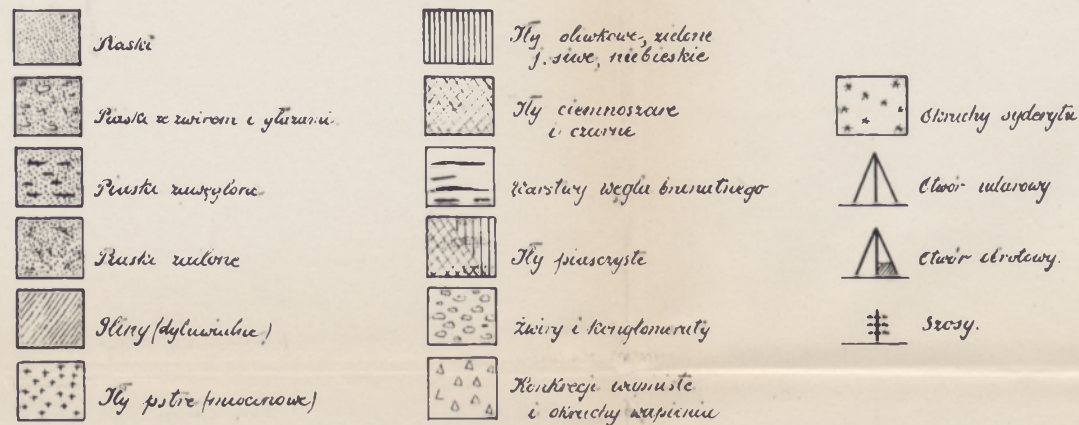 Piaski
Piaski ze żwirem i głazami
Piaski zawęglone
Piaski zailone
Gliny (dyluwialne)
Iły pstre (mioceńowe)
Iły oliwkowe, zielone
j. siwe, niebieskie
Iły ciemnoszare
i czarne
Warstwy węgla brunatnego
Iły piaszczyste
Żwiry i konglomeraty
Konkrecje wapniste
i okruchy wapienia
Okruchy syderytu
Otwór udarowy
Otwór obrotowy.
Szosy.